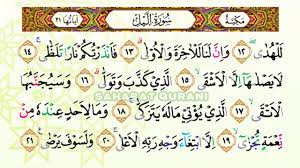 مكية سورة الليل آياتها ٢١
لَلْهُدَىٰ ١٢ وَإِنَّ لَنَا لَلْآخِرَةَ وَالْأُولَىٰ ١٣ فَأَنذَرْتُكُمْ نَارًا تَلَظَّىٰ ١٤
لَا يَصْلَاهَا إِلَّا الْأَشْقَى ١٥ الَّذِي كَذَّبَ وَتَوَلَّىٰ ١٦ وَسَيُجَنَّبُهَا
SAHABAT QURANI
الْأَتْقَى ١٧ الَّذِي يُؤْتِي مَالَهُ يَتَزَكَّىٰ ١٨ وَمَا لِأَحَدٍ عِندَهُ مِن
نِّعْمَةٍ تُجْزَىٰ ١٩ إِلَّا ابْتِغَاءَ وَجْهِ رَبِّهِ الْأَعْلَىٰ ٢٠ وَلَسَوْفَ يَرْضَىٰ ٢١